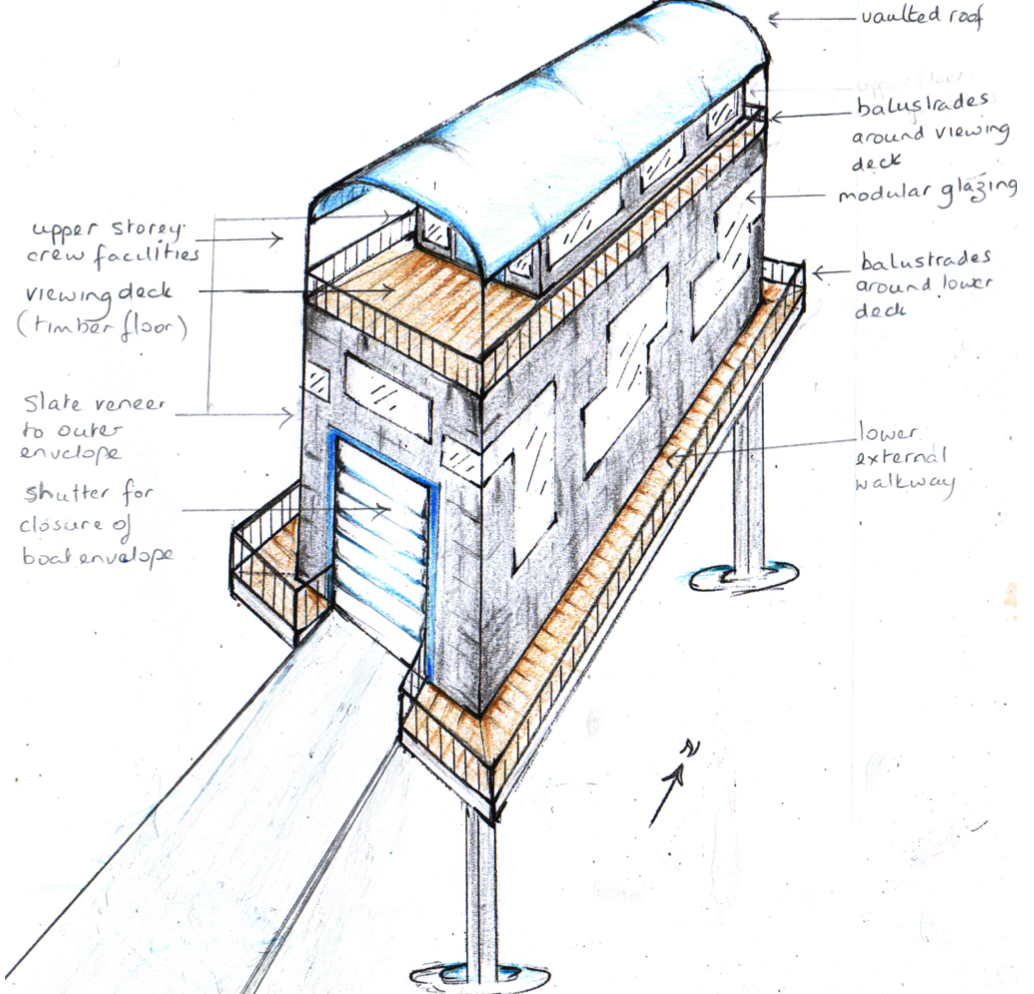 vaulted roof
upper floor
balustrades
around viewing
deck
modular glazing
upper storey:
crew facilities
viewing deck
(timber floor)
balustrades
around lower
deck
Slate veneer
to outer
envelope
lower
external
walkway
shutter for
closure of
boat envelope
N